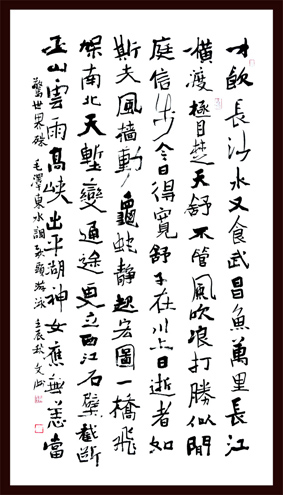 才飲長沙水又食武昌魚萬里長江
橫渡極目楚天舒不管風吹浪打勝似閒
庭信步今日得寬舒子在川上曰逝者如
斯夫風檣動龜蛇靜起宏圖一橋飛
架南北天塹變通途更立西江石壁截斷
巫山雲雨高峽出平湖神女應無恙當
驚世界殊 毛澤東水調歌頭游泳 壬辰秋文